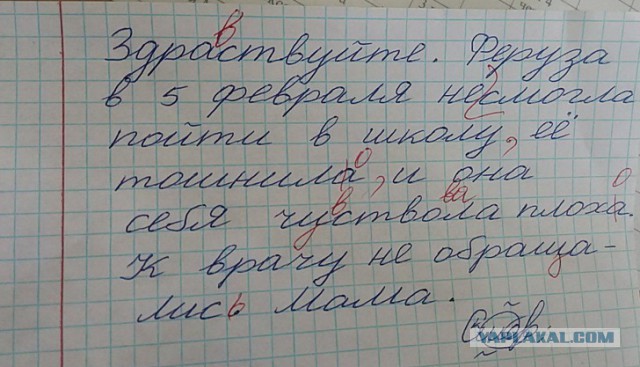 в
Здраствуйте. Феруза
в 5 февраля несмогла
пойти в школу, её
о
тошнила, и она
в ва о
себя чуствола плоха.
К врачу не обраща-
лись мама.
YAPLAKAL.COM